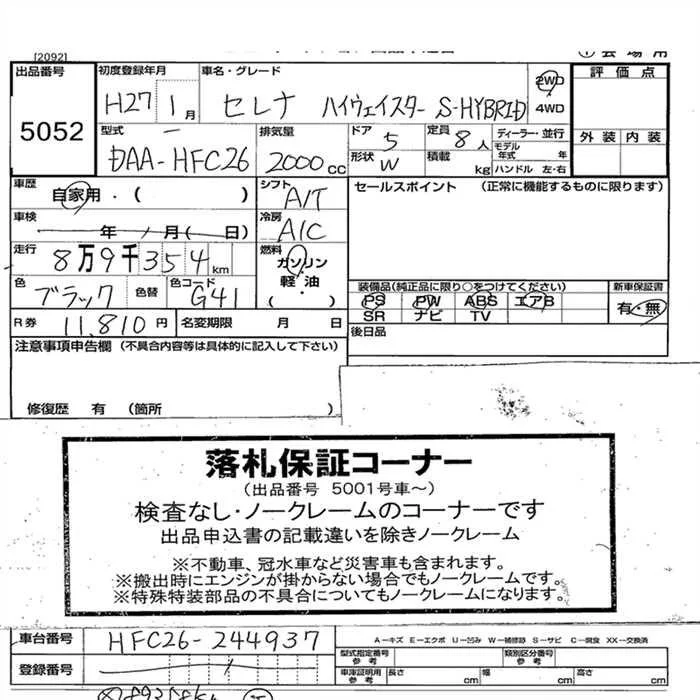 [2092]
① 会場用
出品番号 5052
初度登録年月 H27 1月
車名・グレード セレナ ハイウェイスター S-HYBRID
2WD
4WD
評価点
外装 内装
型式 DAA-HFC26
排気量 2000 CC
ドア 5
定員 8人
形状 W
積載 kg
ディーラー・並行
モデル年式 年
ハンドル 左・右
車歴 自家用・( )
シフト A/T
セールスポイント (正常に機能するものに限ります)
車検 年 月( 日)
冷房 A/C
走行 8万9千354km
燃料 ガソリン
軽・油
・( )
色 ブラック 色替
色コード G41
装備品(純正品に限り○をつけてください)
PS PW ABS エアB
SR ナビ TV
新車保証書
有・無
R券 11,810円
名変期限 月 日
後日品
注意事項申告欄 (不具合内容等は具体的に記入して下さい)
修復歴 有 (箇所 )
落札保証コーナー
(出品番号 5001号車～)
検査なし・ノークレームのコーナーです
出品申込書の記載違いを除きノークレーム
※不動車、冠水車など災害車も含まれます。
※搬出時にエンジンが掛からない場合でもノークレームです。
※特殊特装部品の不具合についてもノークレームになります。
車台番号 HFC26-244937
A－キズ E－エクボ U－凹み W－補修跡 S－サビ C－腐食 XX－交換済
登録番号
型式指定番号 参考
類別区分番号 参考
車庫証明用 参考 長さ cm 幅 cm 高さ cm